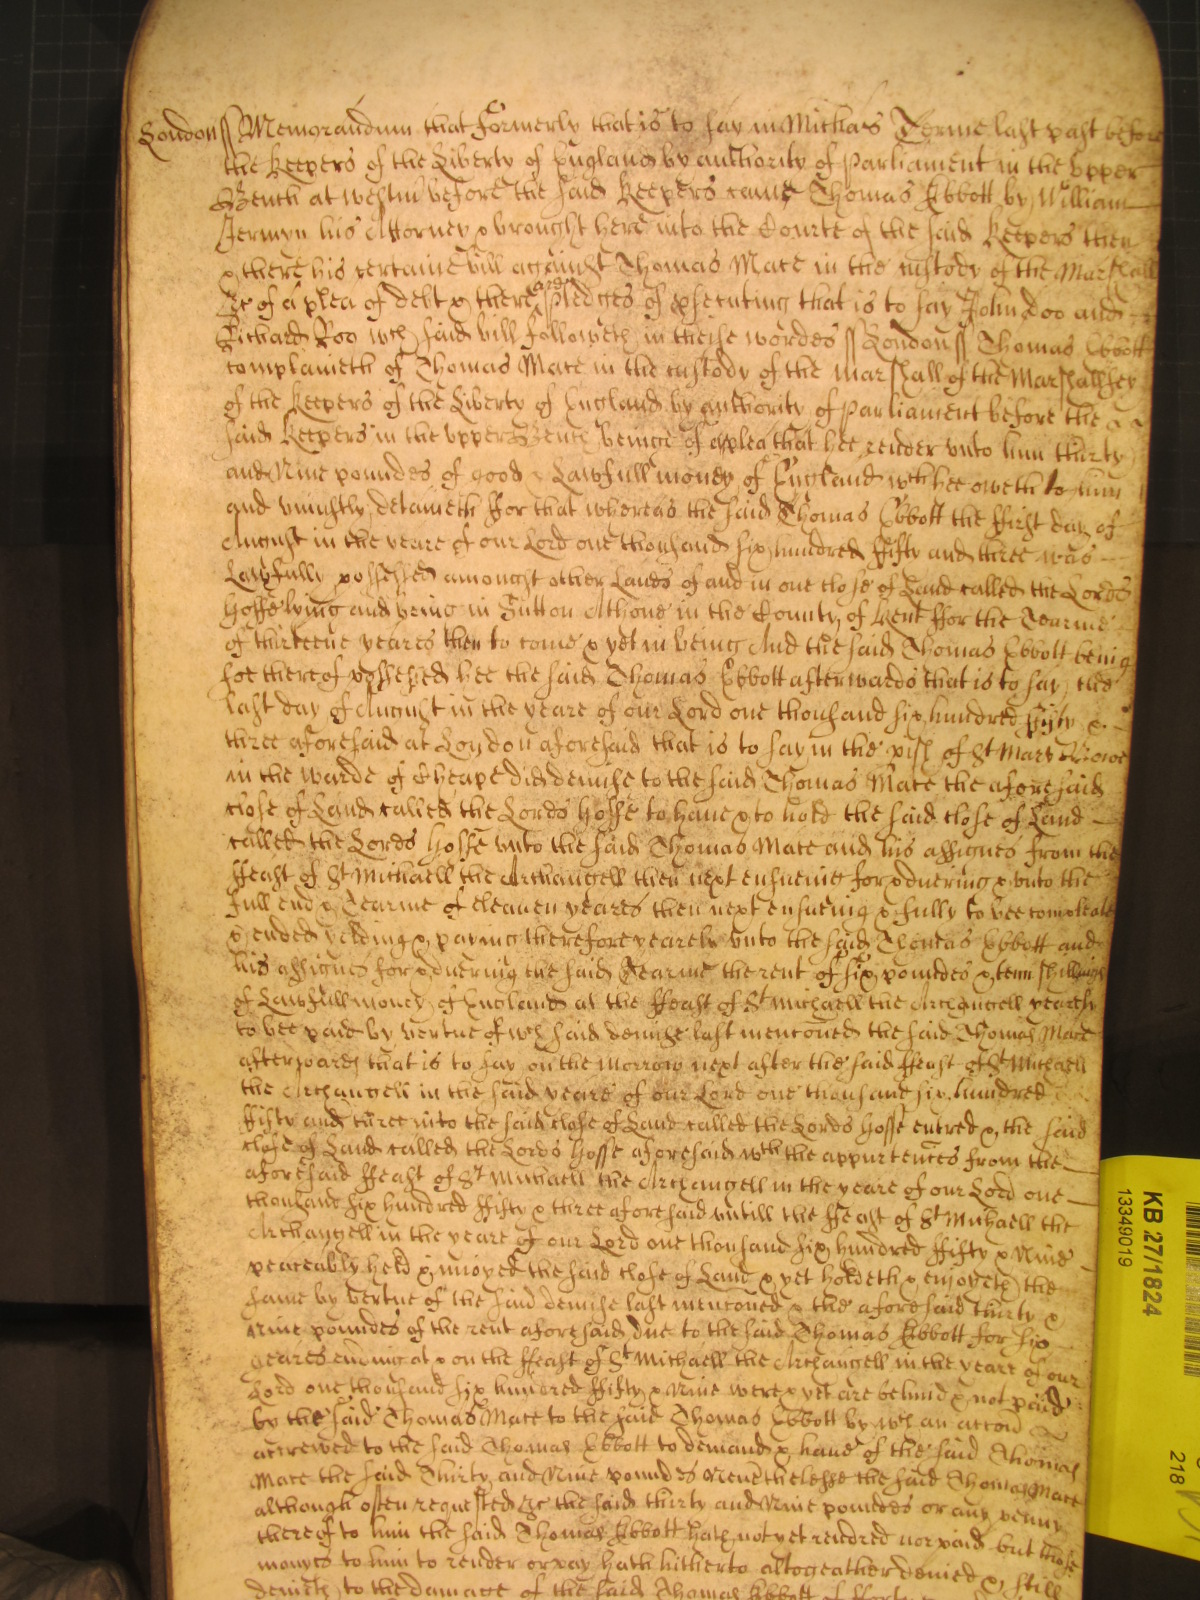 London ss Memorandum that formerly that is to say in Michas Terme last past before
the Keepers of the Liberty of England by authority of Parliament in the vpper
Bench at westm before the said Keepers came Thomas Ebbott by William
Jermyn his Attorney & brought here into the Courte of the said Keepers then
& there his certaine bill against Thomas Mace in the custody of the Marshall
&c of a plea of debt & there are pledges of psecuting that is to say John Doo and
Richard Roo wch said bill followeth in theise wordes ss London ss Thomas Ebbott
complaineth of Thomas Mace in the custody of the marshall of the Marshallsey
of the Keepers of the Liberty of England by authority of Parliament before the
said Keepers in the vpper Bench beinge of a plea that hee render vnto him thirty
and Nine poundes of good & Lawfull money of England wch hee oweth to him
and vniustly detaineth ffor that whereas the said Thomas Ebbott the ffirst day of
August in the yeare of our Lord one thousand six hundred ffifty and three was
Lawfully possessed amongst other Lands of and in one close of Land called the Lords
Hosse lying and being in Sutton Athone in the County of Kent ffor the Tearme
of thirteene yeares then to come & yet in being And the said Thomas Ebbott being
soe thereof possessed hee the said Thomas Ebbott afterwards that is to say the
last day of August in the yeare of our Lord one thousand six hundred fifty &
three aforesaid at London aforesaid that is to say in the pish of St Mary Bowe
in the warde of Cheape did demise to the said Thomas Mace the aforesaid
close of Land called the Lords Hosse to have & to hold the said close of Land
called the Lords Hosse vnto the said Thomas Mace and his assignes from the
ffeast of St Michaell the Archangell then next ensueing for & dureing & vnto the
full end & Tearme of eleaven yeares then next ensueing & fully to bee compleate
& ended yelding & paying therefore yearely vnto the said Thomas Ebbott and
his assignes for & dureing the said Tearme the rent of six poundes & tenn shillings
of Lawfull money of England at the ffeast of St Michaell the Archangell yearely
to bee paid by vertue of wch said demise last menconed the said Thomas Mace
afterwards that is to say on the Morrow next after the said ffeast of St Michaell
the Archangell in the said yeare of our Lord one thousand six hundred
ffifty and three into the said close of Land called the Lords Hosse entred & the said
close of Land called the Lords Hosse aforesaid wth the appurtences from the
aforesaid ffeast of St Michaell the Archangell in the yeare of our Lord one
thousand six hundred ffifty & three aforesaid vntill the ffeast of St Michaell the
Archangell in the yeare of our Lord one thousand six hundred ffifty & Nine
peaceably held & enioyed the said close of Land & yet holdeth & enioyeth the
same by vertue of the said demise last menconed & the aforesaid thirty &
Nine poundes of the rent aforesaid due to the said Thomas Ebbott for six
yeares ending at & on the ffeast of St Michaell the Archangell in the yeare of our
Lord one thousand six hundred ffifty & Nine were & yet are behind & not paid
by the said Thomas Mace to the said Thomas Ebbott by wch an accon
accrewed to the said Thomas Ebbott to demand & have of the said Thomas
Mace the said Thirty and Nine poundes Neverthelesse the said Thomas Mace
although often requested &c the said thirty and Nine poundes or any penny
thereof to him the said Thomas Ebbott hath not yet rendred nor paid but those
moneyes to him to render or pay hath hitherto altogeather denied & still
denieth to the damage of the said Thomas Ebbott of
KB 27/1824
13349019
218